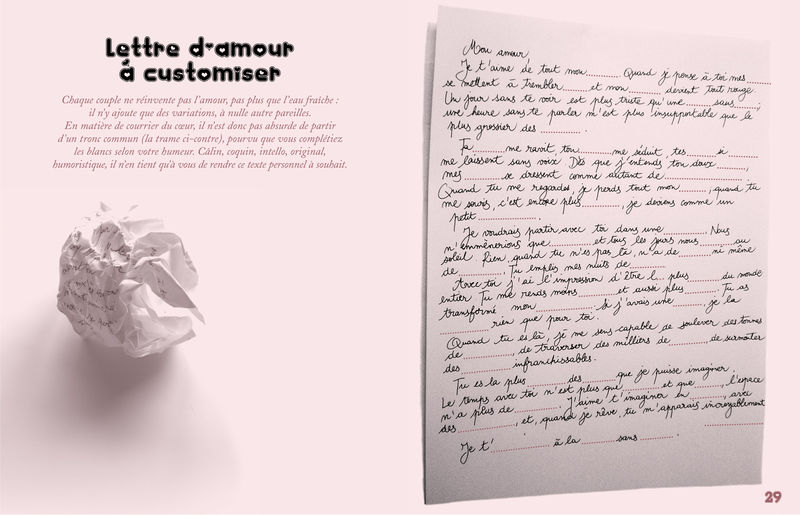 Lettre d'amour
à customiser
Chaque couple ne réinvente pas l'amour, pas plus que l'eau fraîche :
il n'y ajoute que des variations, à nulle autre pareilles.
En matière de courrier du cœur, il n'est donc pas absurde de partir
d'un tronc commun (la trame ci-contre), pourvu que vous complétiez
les blancs selon votre humeur. Câlin, coquin, intello, original,
humoristique, il n'en tient qu'à vous de rendre ce texte personnel à souhait.
Mon amour,
Je t'aime de tout mon ........ Quand je pense à toi mes ........
se mettent à trembler ........ et mon ........ devient tout rouge.
Un jour sans te voir est plus triste qu'une ........ sans ........ ;
une heure sans te parler m'est plus insupportable que le
plus grossier des ........ .
Ta ........ me ravit, ton ........ me séduit, tes ........ si ........
me laissent sans voix. Dès que j'entends ton doux ........ ,
mes ........ se dressent comme autant de ........ .
Quand tu me regardes, je perds tout mon ........ , quand tu
me souris, c'est encore plus ........ , je deviens comme un
petit ........ .
Je voudrais partir avec toi dans une ........ . Nous
n'emmènerions que ........ et tous les jours nous ........ au
soleil. Rien, quand tu n'es pas là, n'a de ........ ni même
de ........ . Tu emplis mes nuits de ........
Avec toi j'ai l'impression d'être l... plus ........ du monde
entier. Tu me rends moins ........ et aussi plus ........ . Tu as
transformé mon ........ . Si j'avais une ........ , je la
........ rien que pour toi.
Quand tu es là, je me sens capable de soulever des tonnes
de ........ , de traverser des milliers de ........ de surmonter
des ........ infranchissables.
Tu es la plus ........ des ........ que je puisse imaginer.
Le temps avec toi n'est plus que ........ et que ........ , l'espace
n'a plus de ........ . J'aime t'imaginer en ........ , avec
des ........ , et, quand je rêve, tu m'apparais incroyablement
........
Je t' ........ à la ........ sans ........ .
29